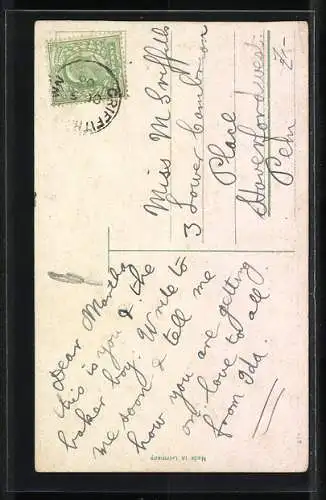 Miss M Griffiths
3 Lower Cambrian
Place
Haverfordwest
Pem
Dear Martha
this is you & the
baker boy. Write to
me soon & tell me
how you are getting
on love to all.
from Ida.
GRIFFITH
Made in Germany